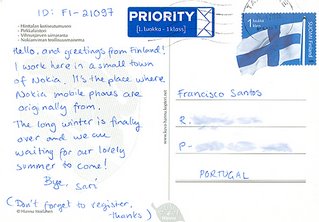 ID: FI-21097
PRIORITY
[1. luokka - 1 klass]
1 luokka klass
SUOMI FINLAND
Hello, and greetings from Finland!
I work here in a small town
of Nokia. It's the place where
Nokia mobile phones are
originally from.
The long winter is finally
over and we are
waiting for our lovely
summer to come!
Bye, Sari
(Don't forget to register,
thanks)
Francisco Santos
R.
P-
PORTUGAL